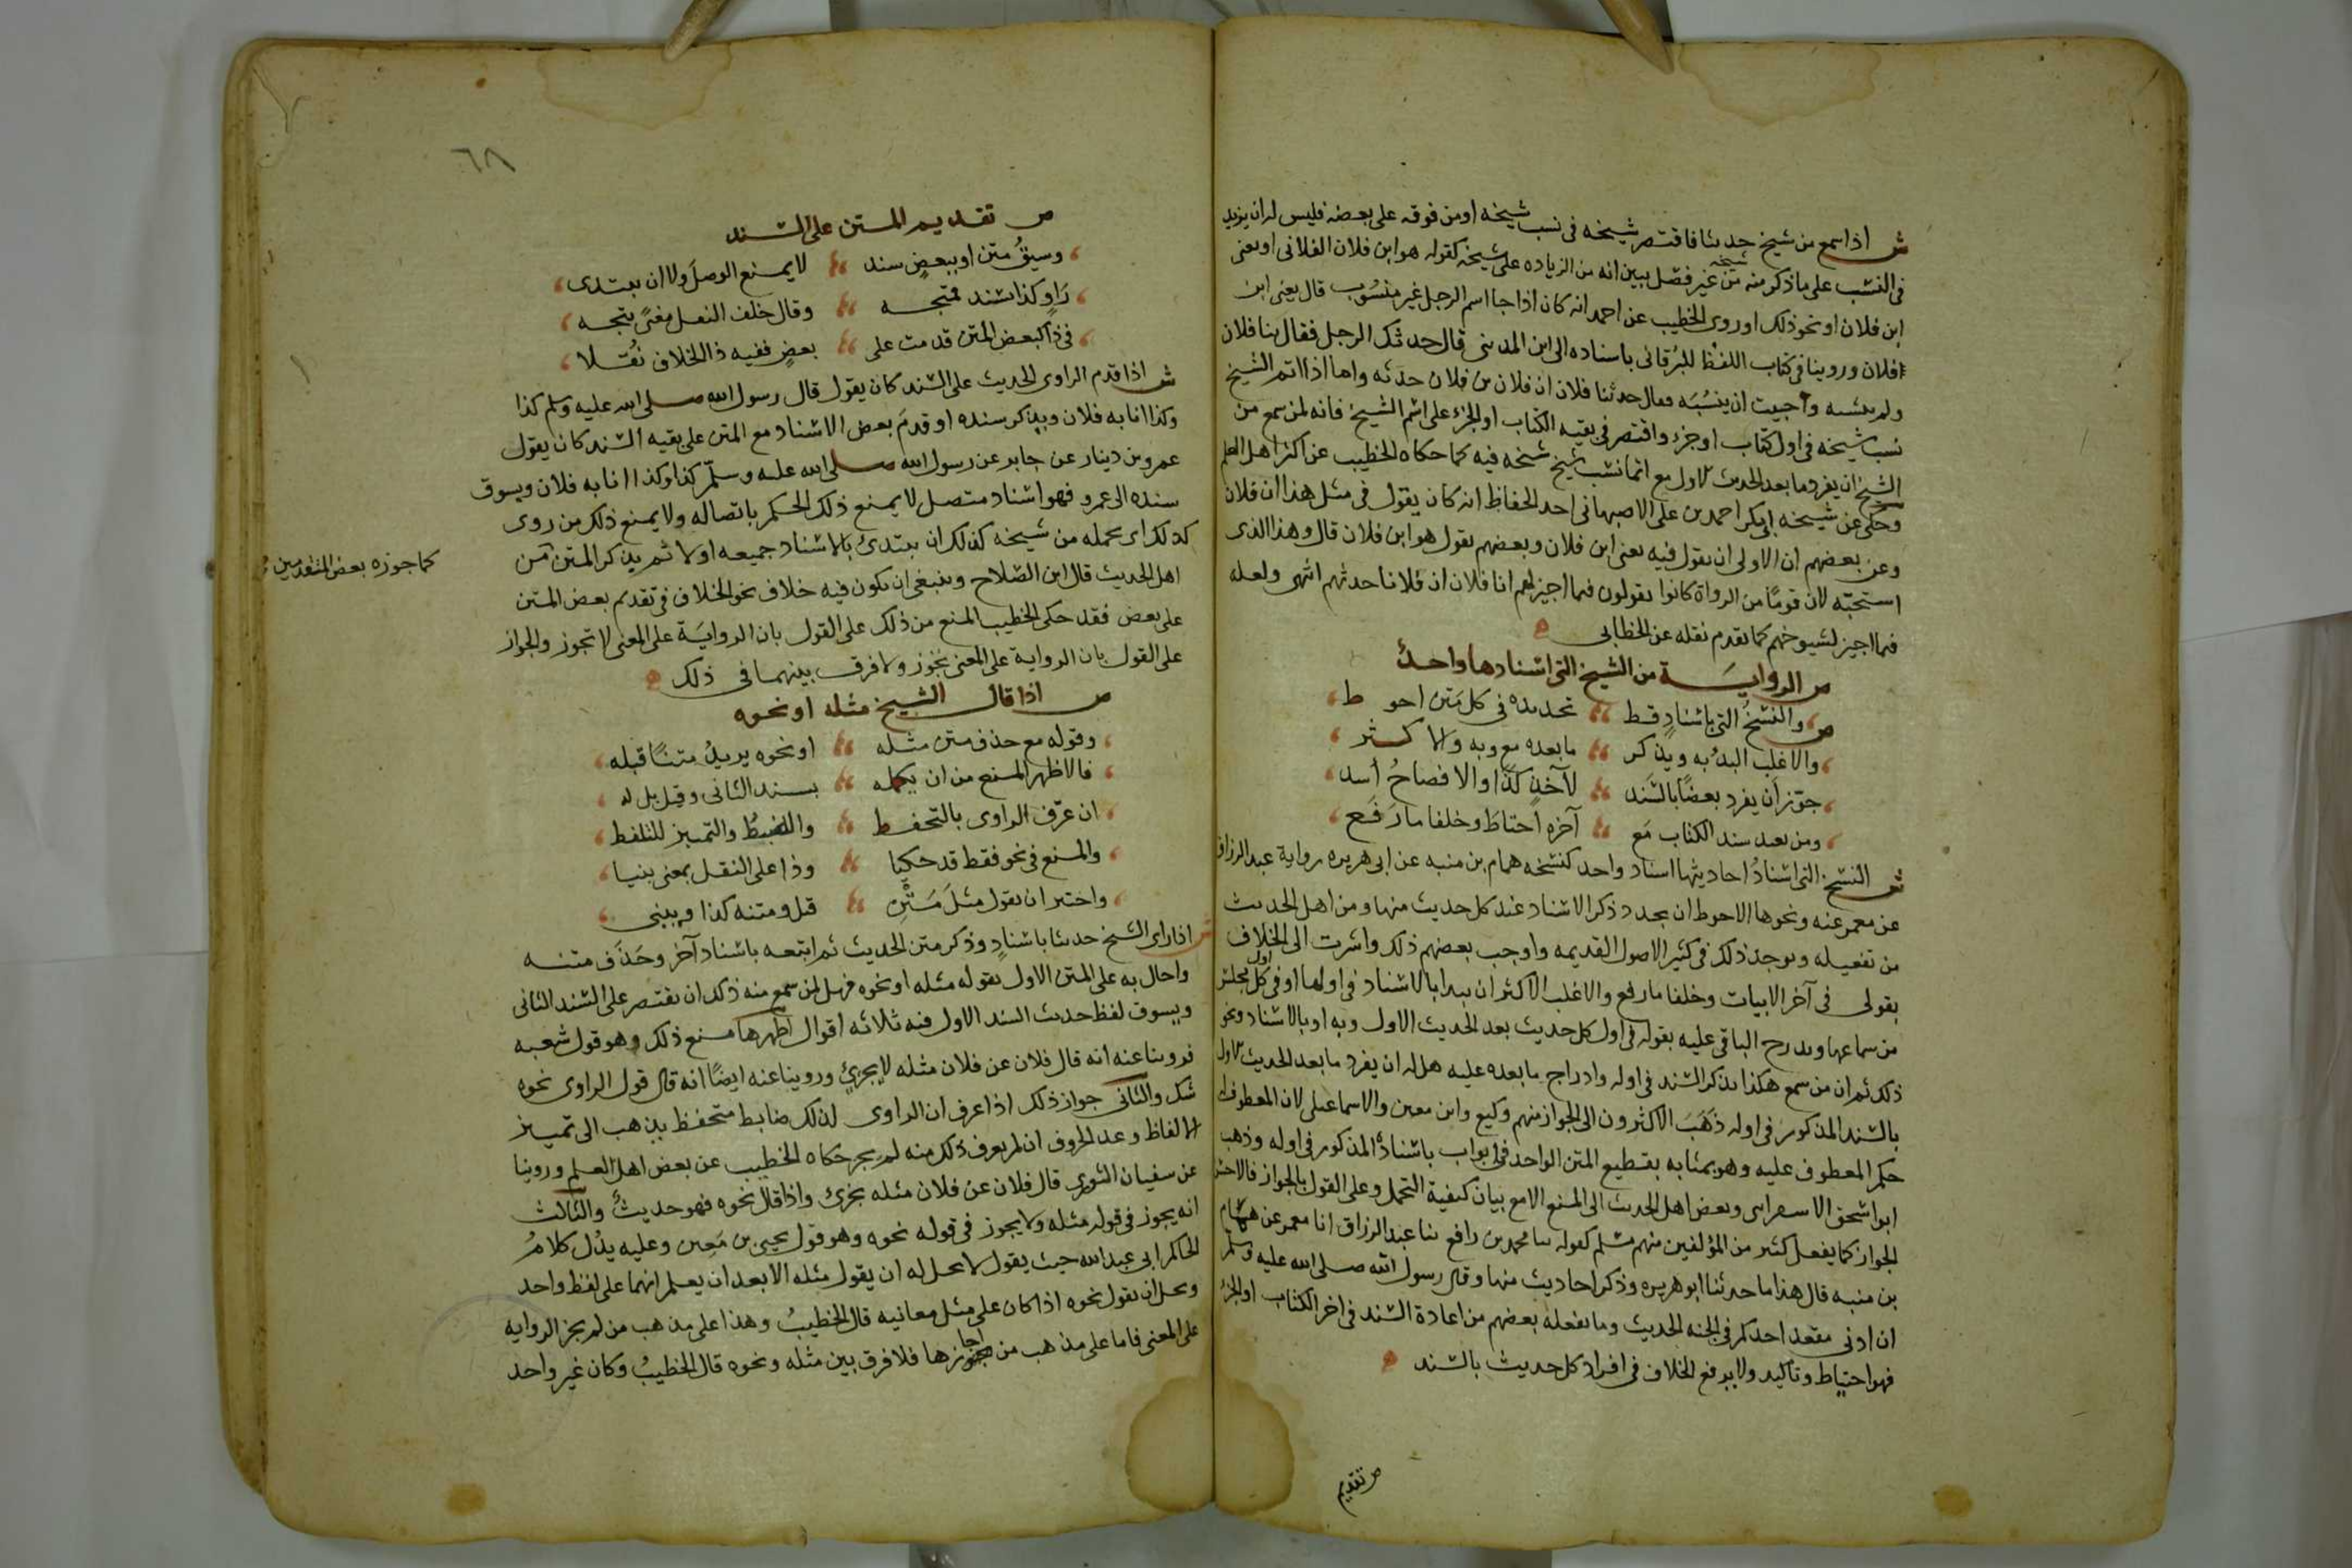 ش اذا سمع من شيخ حديثا فاقتصر شيخه في نسب شيخه او من فوقه على بعضه فليس له ان يزيد
في النسب على ما ذكر منه شيخه من غير فصل يبين انه من الزياده على شيخه كقوله هو ابن فلان الفلاني او يعني
ابن فلان او نحو ذلك وروى الخطيب عن احمد انه كان اذا جا اسم الرجل غير منسوب قال يعني ابن
فلان وروينا في كتاب اللقط للبرقاني باسناده الى ابن المديني قال حدثك الرجل فقال ثنا فلان
ولم ينسبه واحببت ان ينسبه فقال حدثنا فلان ان فلان بن فلان حدثه واما اذا اتم الشيخ
نسب شيخه في اول كتاب او جزء واقتصر في بقيه الكتاب او الجزء على اسم الشيخ فانه لمن سمع من
الشيخ ان يفرد ما بعد الحديث الاول مع اتمام نسب شيخ شيخه فيه كما حكاه الخطيب عن اكثر اهل العلم
وحكى عن شيخه ابي بكر احمد بن علي الاصبهاني احد الحفاظ انه كان يقول في مثل هذا ان فلان
وعن بعضهم ان الاولى ان يقول فيه يعني ابن فلان وبعضهم يقول هو ابن فلان قال وهذا الذي
استحبه لان قوما من الرواة كانوا يقولون فيما اجيز لهم انا فلان ان فلانا حدثهم انتهى ولعله
فيما اجيز لشيوخهم كما تقدم نقله عن الخطابي
ص الرواية من النسخ التي اسنادها واحد
ص والنسخ التي باسناد قط تجديده في كل متن احوط
والاغلب البدء به ويذكر ما بعده مع وبه والاكثر
جوز ان يفرد بعضا بالسند لآخذ كذا والافصاح اسد
ومن يعيد سند الكتاب مع آخره احتاط وخلفا ما رفع
ش النسخ التي اسناد احاديثها اسناد واحد كنسخه همام بن منبه عن ابي هريره رواية عبد الرزاق
عن معمر عنه ونحوها الاحوط ان يجدد ذكر الاسناد عند كل حديث منها ومن اهل الحديث
من يفعله ويوجد ذلك في كثير الاصول القديمه واوجب بعضهم ذلك واشرت الى الخلاف
بقولي في آخر الابيات وخلفا ما رفع والاغلب الاكثر ان يبدا بالاسناد في اولها او في اول كل مجلس
من سماعها ويدرج الباقي عليه بقوله في اول كل حديث بعد الحديث الاول وبه او بالاسناد ونحو
ذلك ثم ان من سمع هكذا بذكر السند في اوله وادراج ما بعده عليه هل له ان يفرد ما بعد الحديث الاول
بالسند المذكور في اوله ذهب الاكثرون الى الجواز منهم وكيع وابن معين والاسماعيلي لان المعطوف له
حكم المعطوف عليه وهو بمثابه تقطيع المتن الواحد في ابواب باسناده المذكور في اوله وذهب
ابو اسحق الاسفرايني وبعض اهل الحديث الى المنع الا مع بيان كيفية التحمل وعلى القول بالجواز فالاحسن
الجواز كما يفعل كثير من المؤلفين منهم مسلم كقوله ثنا محمد بن رافع ثنا عبد الرزاق انا معمر عن همام
بن منبه قال هذا ما حدثنا ابو هريره وذكر احاديث منها وقال رسول الله صلى الله عليه وسلم
ان ادنى مقعد احدكم في الجنه الحديث وما يفعله بعضهم من اعادة السند في اخر الكتاب او الجزء
فهو احتياط وتاكيد ولا يرفع الخلاف في افراد كل حديث بالسند
ص تقديم
٦٨
ص تقديم المتن على السند
وسبق متن او ببعض سند لا يمنع الوصل ولا ان يبتدى
راو كذا بسند فمتجه وقال خلف النقل معنى يتجه
في ذا كبعض المتن قدمت على بعض ففيه ذا الخلاف نقلا
ش اذا قدم الراوي الحديث على السند كان يقول قال رسول الله صلى الله عليه وسلم كذا
وكذا انا به فلان ويذكر سنده او قدم بعض الاسناد مع المتن على بقيه السند كان يقول
عمرو بن دينار عن جابر عن رسول الله صلى الله عليه وسلم كذا وكذا انا به فلان ويسوق
سنده الى عمرو فهو اسناد متصل لا يمنع ذلك الحكم باتصاله ولا يمنع ذلك من روى
كذلك اي تحمله من شيخه كذلك ان يبتدئ بالاسناد جميعه اولا ثم يذكر المتن من
كما جوزه بعض المتقدمين
اهل الحديث قال ابن الصلاح وينبغي ان يكون فيه خلاف نحو الخلاف في تقديم بعض المتن
على بعض فقد حكى الخطيب المنع من ذلك على القول بان الرواية على المعنى لا تجوز والجواز
على القول بان الرواية على المعنى تجوز ولا فرق بينهما في ذلك
ص اذا قال الشيخ مثله او نحوه
وقوله مع حذف متن مثله او نحوه يريد متنا قبله
فالاظهر المنع من ان يكمله بسند الثاني وقيل بل له
ان عرف الراوي بالتحفظ والضبط والتمييز للتلفظ
والمنع في نحو فقط قد حكيا وذا على النقل بمعنى بنيا
واختير ان يقول مثل متن قبل ومتنه كذا ويبني
ش اذا روى الشيخ حديثا باسناد وذكر متن الحديث ثم اتبعه باسناد آخر وحذف متنه
واحال به على المتن الاول بقوله مثله او نحوه فهل لمن سمع منه ذلك ان يقتصر على السند الثاني
ويسوق لفظ حديث السند الاول فيه ثلاثه اقوال اظهرها منع ذلك وهو قول شعبه
فروينا عنه انه قال فلان عن فلان مثله لا يجزئ وروينا عنه ايضا انه قال قول الراوي نحوه
شك والثاني جواز ذلك اذا عرف ان الراوي لذلك ضابط متحفظ يذهب الى تمييز
الالفاظ وعد الحروف فان لم يعرف ذلك منه لم يجز حكاه الخطيب عن بعض اهل العلم وروينا
عن سفيان الثوري قال فلان عن فلان مثله يجزئ واذا قال نحوه فهو حديث والثالث
انه يجوز في قوله مثله ولا يجوز في قوله نحوه وهو قول يحيى بن معين وعليه يدل كلام
الحاكم ابي عبد الله حيث يقول لا يحل له ان يقول مثله الا بعد ان يعلم انهما على لفظ واحد
ويحل ان يقول نحوه اذا كان على مثل معانيه قال الخطيب وهذا على مذهب من لم يجز الروايه
على المعنى فاما على مذهب من اجازها فلا فرق بين مثله ونحوه قال الخطيب وكان غير واحد